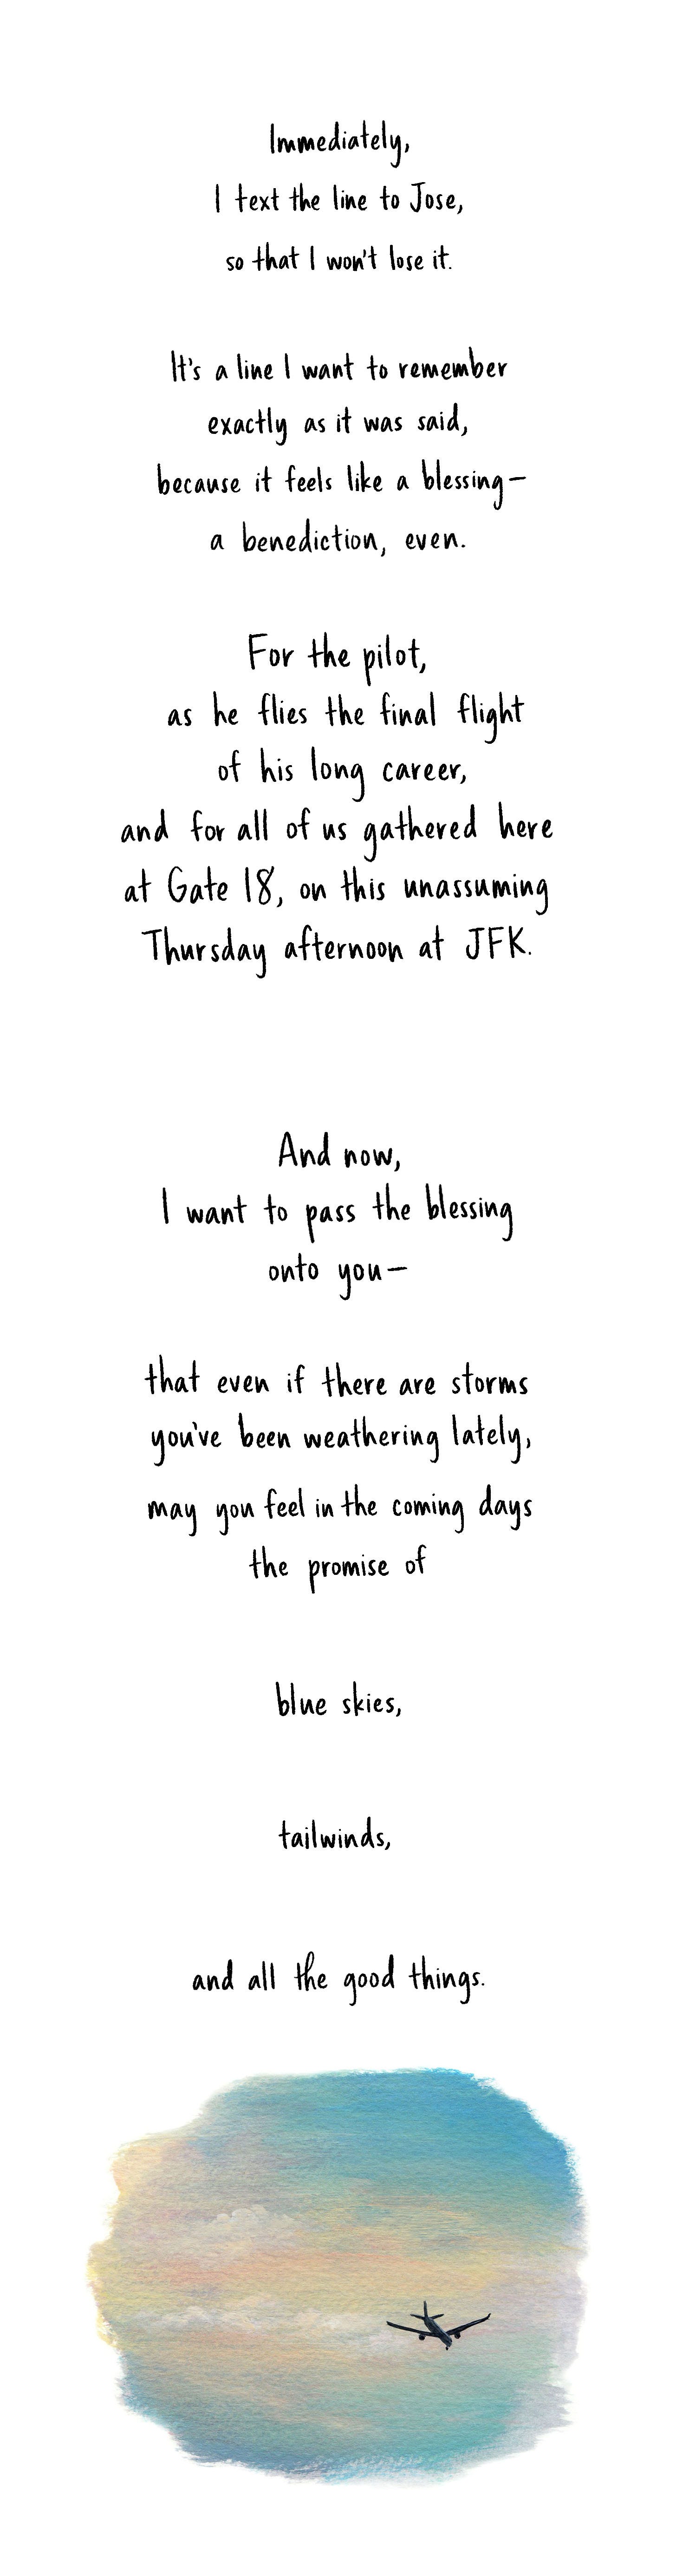 Immediately,
I text the line to Jose,
so that I won't lose it.
It's a line I want to remember
exactly as it was said,
because it feels like a blessing—
a benediction, even.
For the pilot,
as he flies the final flight
of his long career,
and for all of us gathered here
at Gate 18, on this unassuming
Thursday afternoon at JFK.
And now,
I want to pass the blessing
onto you—
that even if there are storms
you've been weathering lately,
may you feel in the coming days
the promise of
blue skies,
tailwinds,
and all the good things.